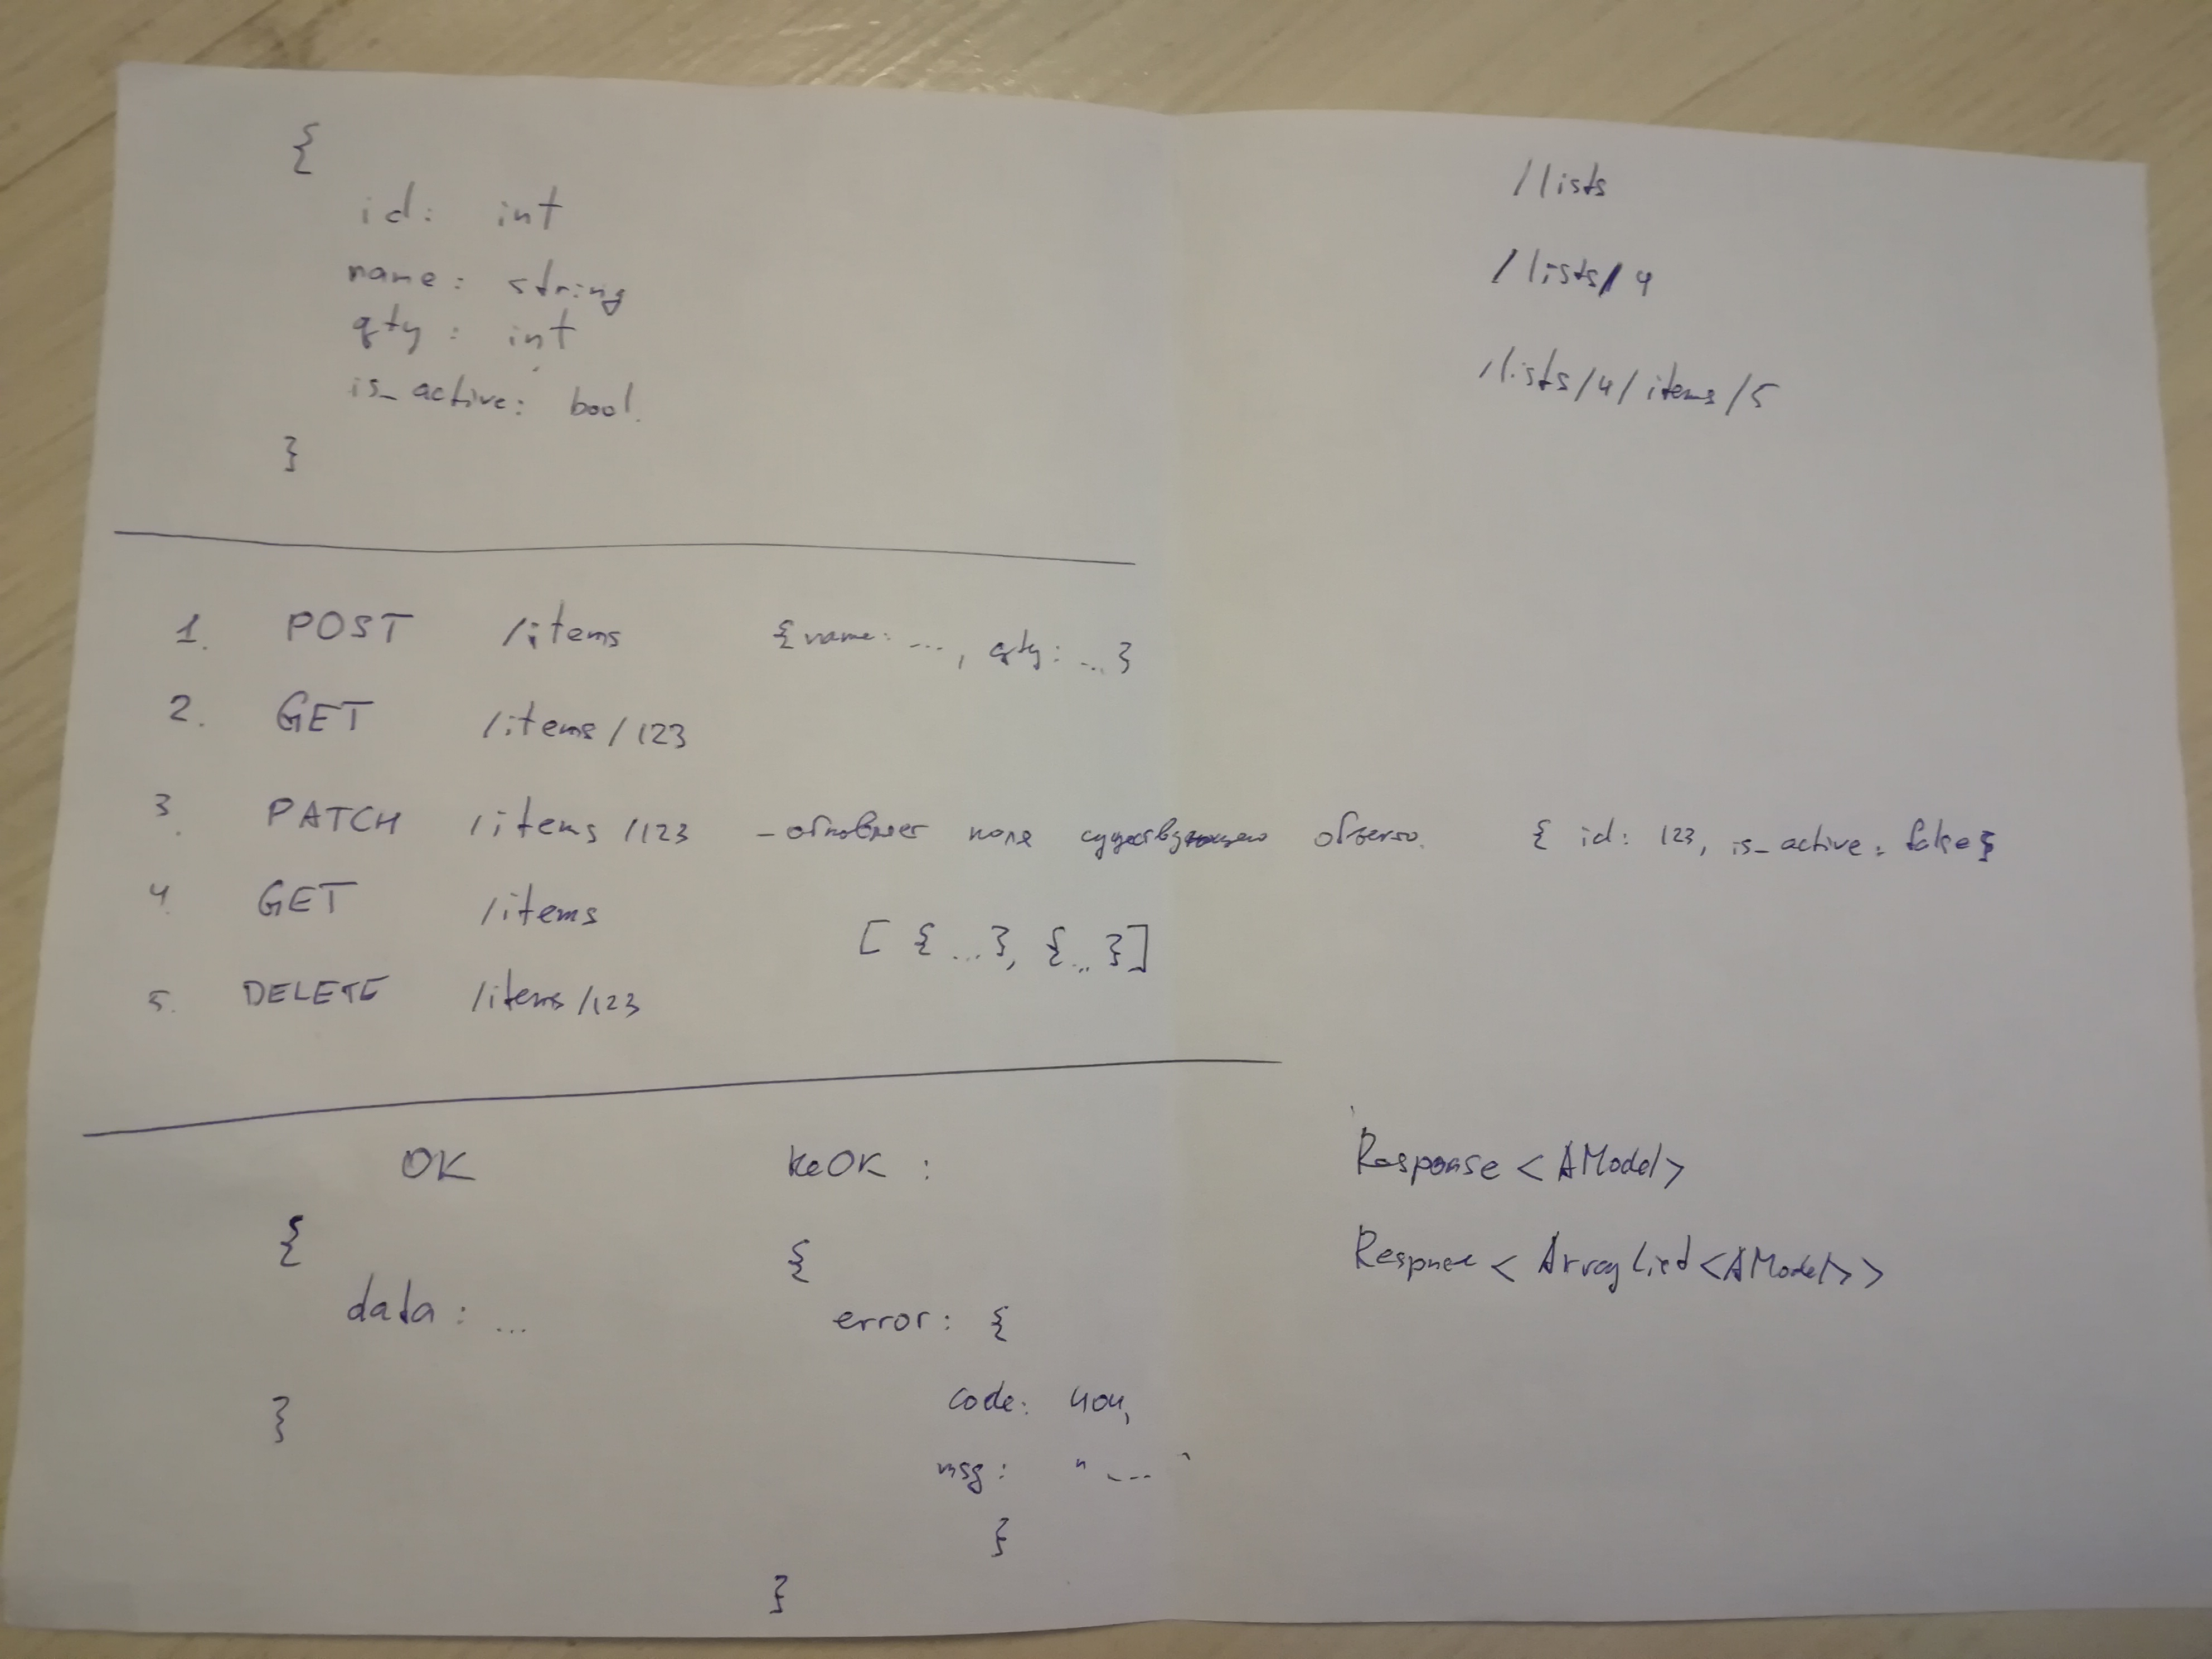 {
id: int
name: string
qty: int
is_active: bool.
}
/lists
/lists/4
/lists/4/items/5
1. POST /items { name: ..., qty: ... }
2. GET /items/123
3. PATCH /items/123 - обновляет поля существующего объекта. { id: 123, is_active: false }
4. GET /items
[ {...}, {...} ]
5. DELETE /items/123
OK
{
data: ...
}
неОК :
{
error: {
code: 404,
msg: "...."
}
}
Response <AModel>
Response < ArrayList <AModel>>